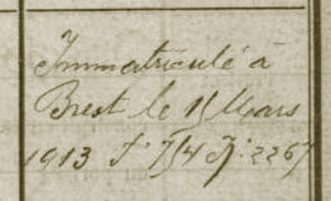 Immatriculé à
Brest le 15 Mars
1913 f° 754 N° 2267